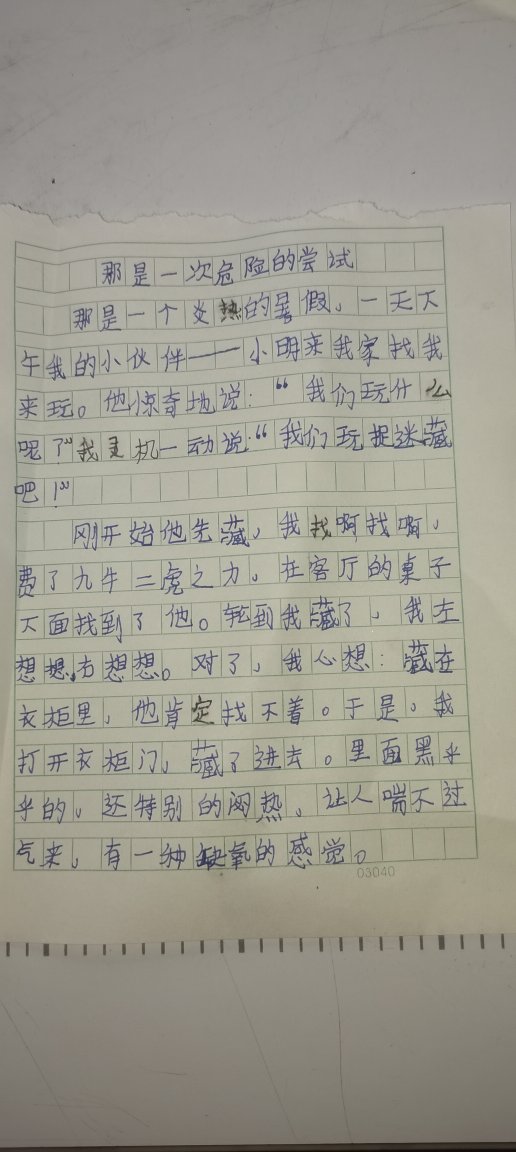 那是一次危险的尝试
那是一个炎热的暑假,一天下
午我的小伙伴——小明来我家找我
来玩。他惊奇地说:“我们玩什么
呢?”我灵机一动说:“我们玩捉迷藏
吧!”
刚开始他先藏,我找啊找啊,
费了九牛二虎之力。在客厅的桌子
下面找到了他。轮到我藏了,我左
想想,右想想。对了,我心想:藏在
衣柜里,他肯定找不着。于是,我
打开衣柜门,藏了进去。里面黑乎
乎的,还特别的闷热,让人喘不过
气来,有一种缺氧的感觉。
03040